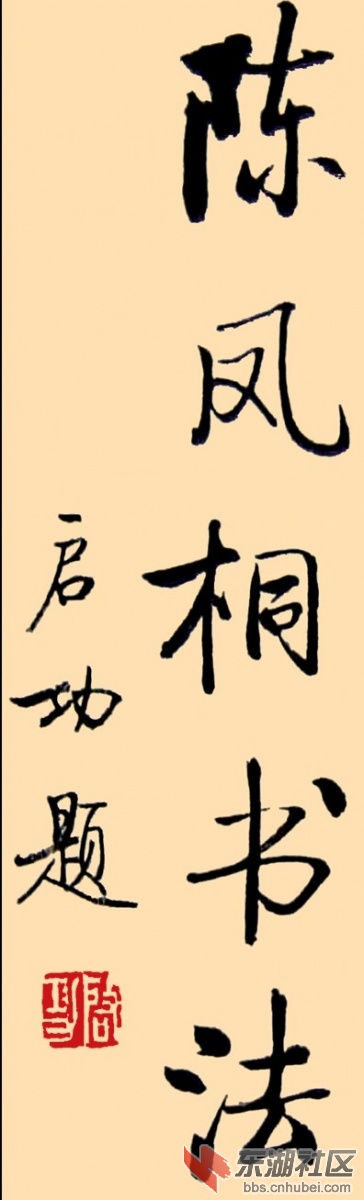 陈凤桐书法
启功题
启功
东湖社区
bbs.cnhubei.com